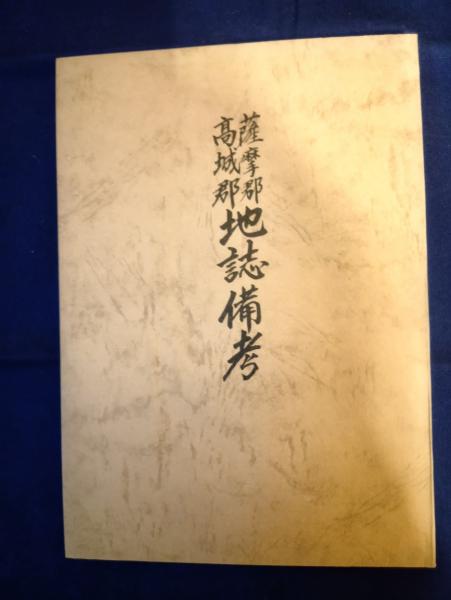 薩摩郡
高城郡
地誌備考